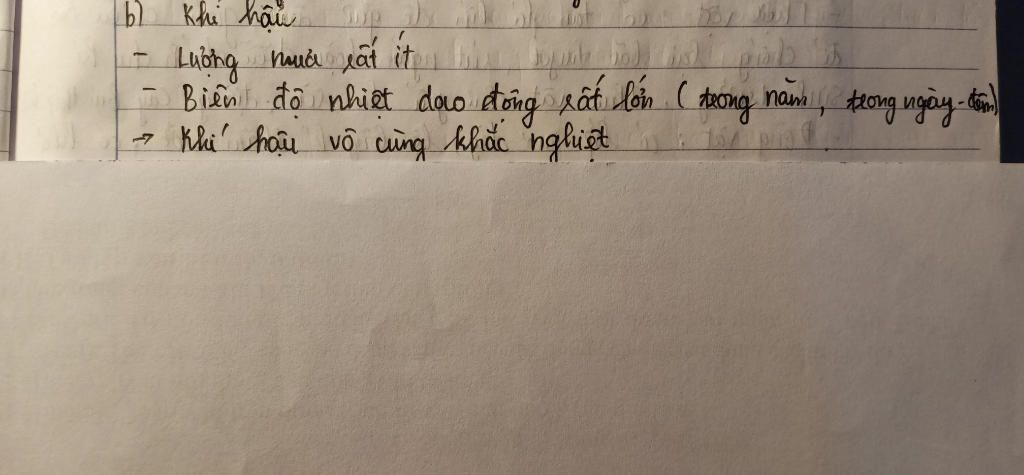 b) Khí hậu
- Lượng mưa rất ít
- Biên độ nhiệt dao động rất lớn ( trong năm, trong ngày-đêm)
→ Khí hậu vô cùng khắc nghiệt